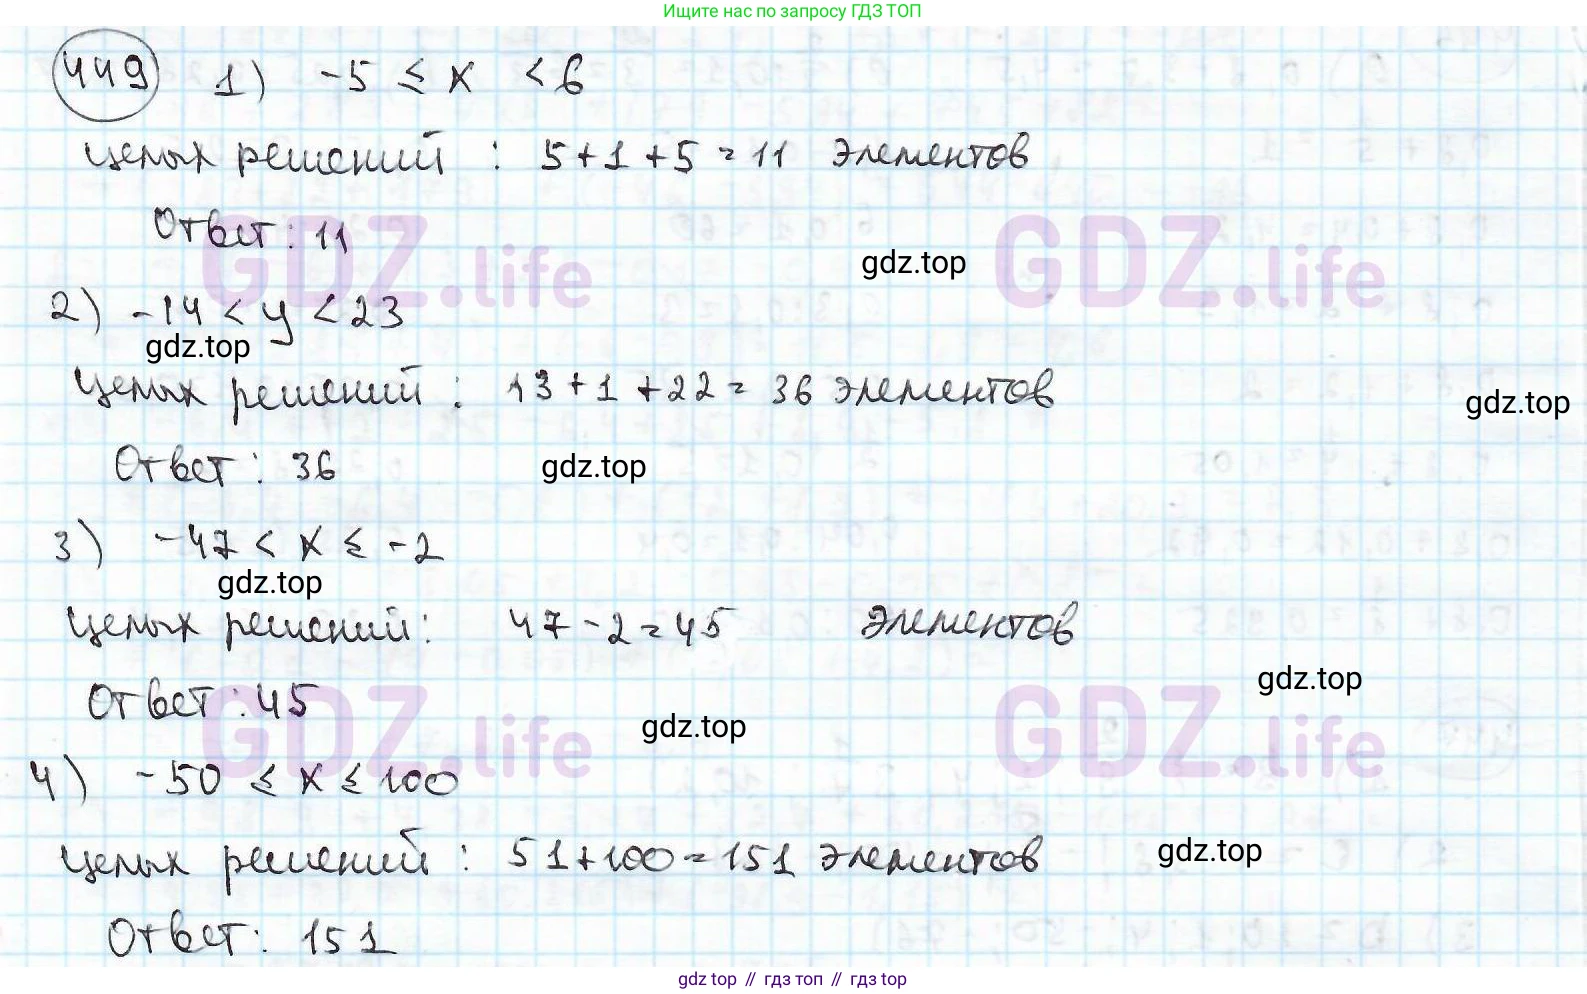 Ищите нас по запросу ГДЗ ТОП
449 1) -5 ≤ x < 6
целых решений : 5+1+5=11 элементов
Ответ: 11
GDZ.life GDZ.life
gdz.top
2) -14 < y < 23
gdz.top
целых решений : 13+1+22=36 элементов
gdz.top
Ответ: 36
gdz.top
3) -47 < x ≤ -2
gdz.top
целых решений: 47-2=45 элементов
gdz.top
Ответ: 45
GDZ.life GDZ.life
gdz.top
4) -50 ≤ x ≤ 100
целых решений : 51+100=151 элементов
gdz.top
Ответ: 151
gdz top // гдз топ // gdz top